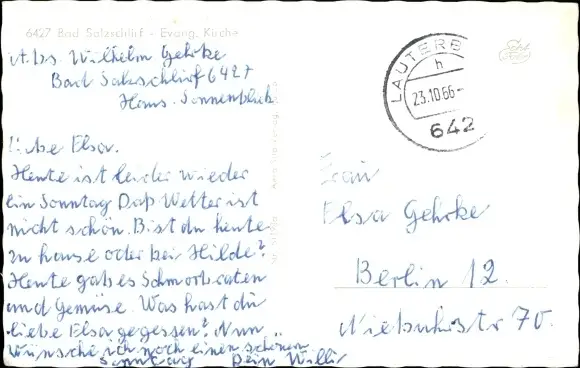 6427 Bad Salzschlirf - Evang. Kirche
Abs. Wilhelm Gehrke
Bad Salzschlirf 6427
Haus Sonnenblick
Liebe Elsa.
Heute ist leider wieder
ein Sonntag Daß Wetter ist
nicht schön. Bist du heute
zu hause oder bei Hilde?
Heute gab es Schmorbraten
und Gemüse. Was hast du
liebe Elsa gegessen? Nun
wünsche ich noch einen schönen
Sonntag Dein Willi
LAUTERB
h
23.10.66-
642
Frau
Elsa Gehrke
Berlin 12.
Niebuhrstr 70.